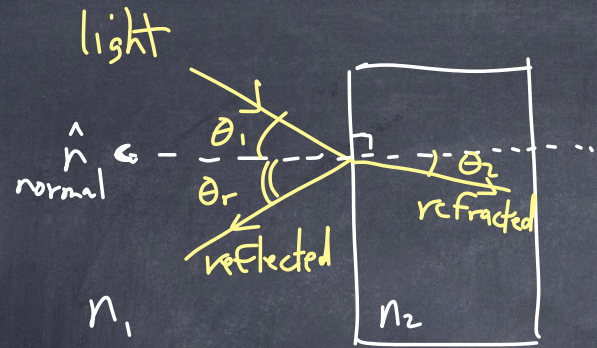 light
θ₁
n̂
normal
θr
θ₂
refracted
reflected
n₁
n₂